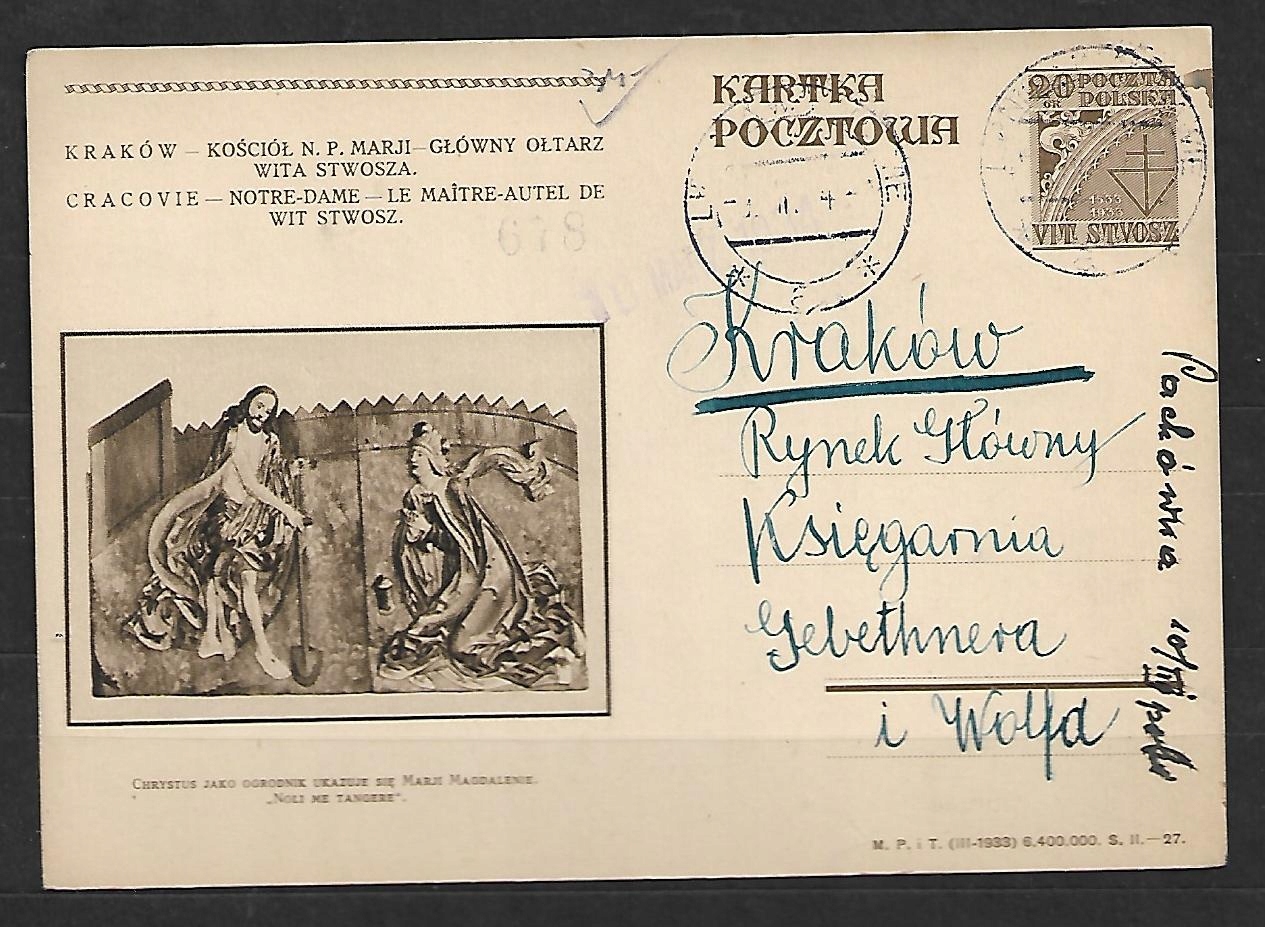 KRAKÓW — KOŚCIÓŁ N. P. MARJI—GŁÓWNY OŁTARZ
WITA STWOSZA.
CRACOVIE — NOTRE-DAME — LE MAÎTRE-AUTEL DE
WIT STWOSZ.
678
CHRYSTUS JAKO OGRODNIK UKAZUJE SIĘ MARJI MAGDALENIE.
„NOLI ME TANGERE".
KARTKA
POCZTOWA
20 POCZTA
GR POLSKA
1533
1933
VIT STVOSZ
Kraków
Rynek Główny
Księgarnia
Gebethnera
i Wolfa
10/III
M. P. i T. (III-1933) 6.400.000. S. II.—27.